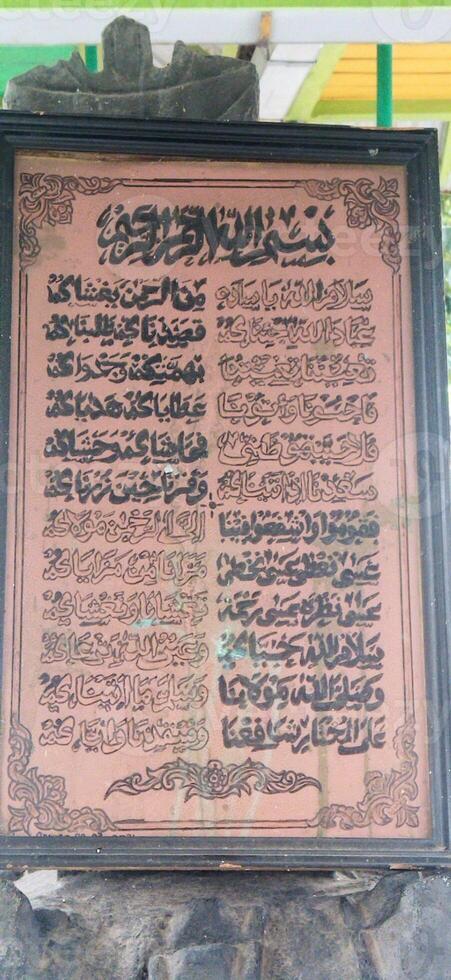 بسم الله الرحمن الرحيم
سلام الله يا سادة من الرحمن يغشاكم
عباد الله جئناكم قصدناكم طلبناكم
تعينونا تغيثونا بهمتكم وجدواكم
فاحبونا واعطونا عطاياكم هداياكم
فلا خيبتمو ظني فحاشاكم وحاشاكم
سعدنا اذ اتيناكم وفزنا حين زرناكم
فقوموا واشفعوا فينا الى الرحمن مولاكم
عسى نحظى عسى نعطى مزايا من مزاياكم
عسى نظرة عسى رحمة تغشانا وتغشاكم
سلام الله حياكم وعين الله ترعاكم
وصلى الله مولانا وسلم ما اتيناكم
على المختار شافعنا ومنقذنا واياكم